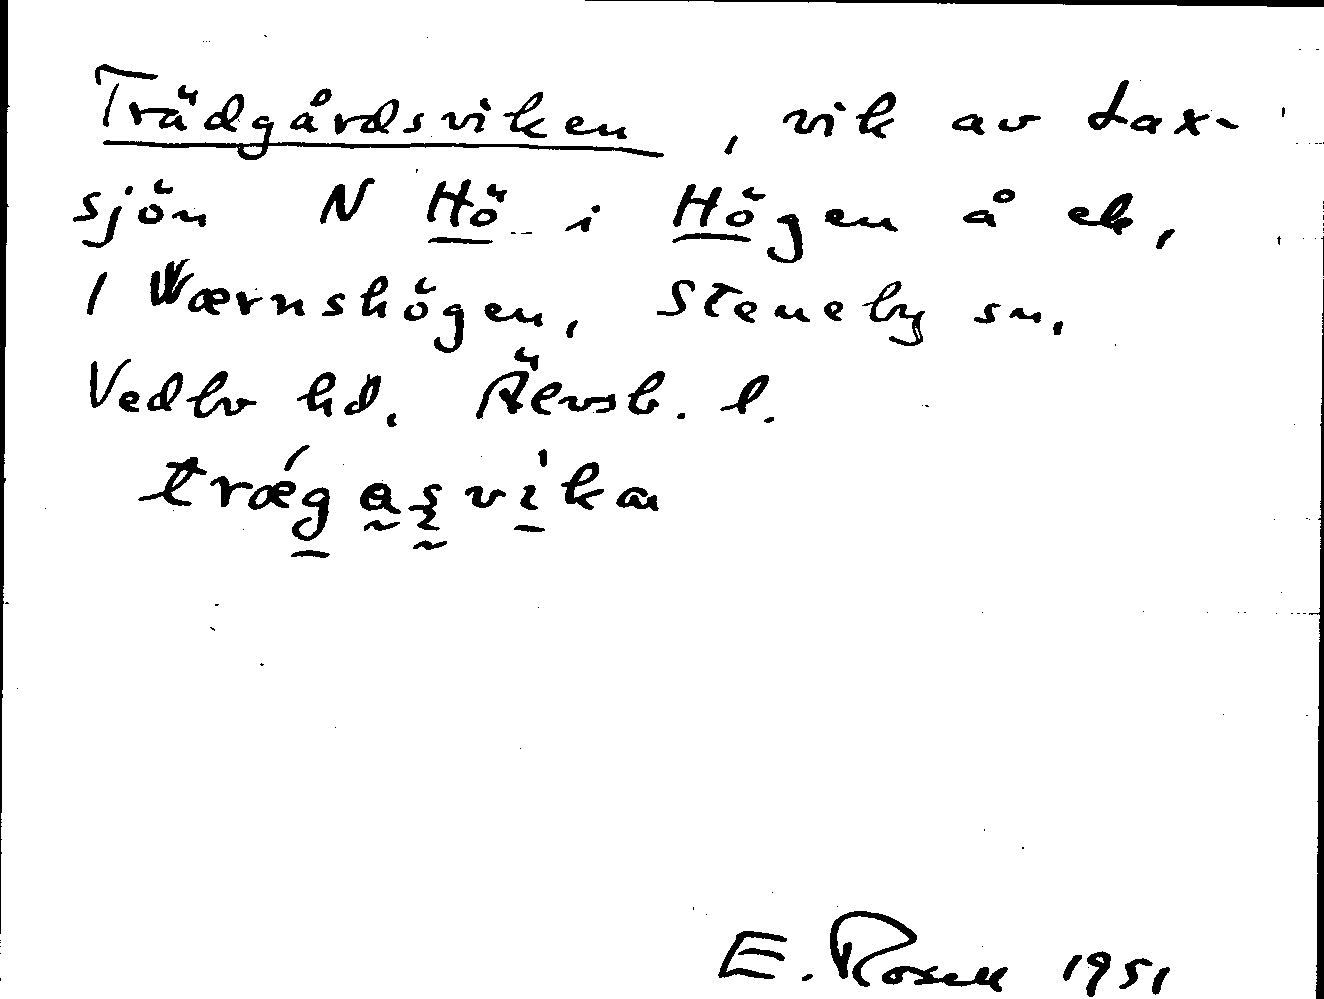 Trädgårdsviken, vik av Lax-
sjön N Hö i Högen å ek,
1 Wærnshögen, Steneby sn,
Vedbo hd. Älvsb. l.
trǽgasvíka
E. Rosell 1951